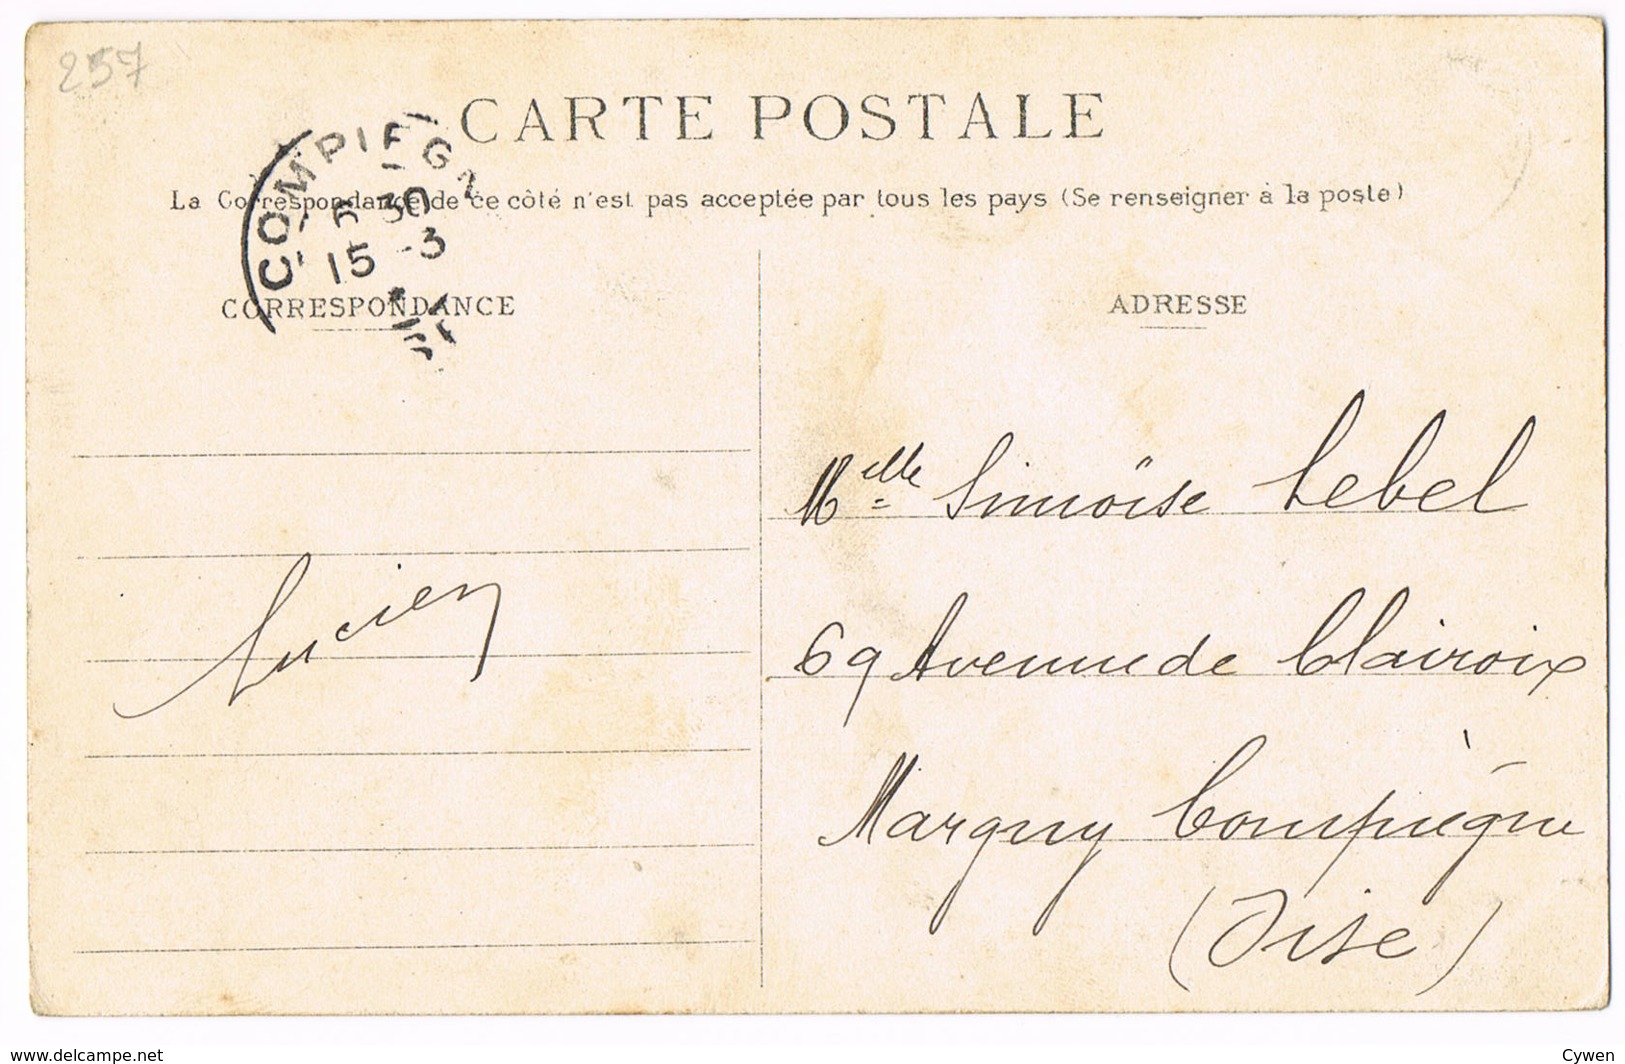 257
CARTE POSTALE
La Correspondance de ce côté n'est pas acceptée par tous les pays (Se renseigner à la poste)
COMPIEGN
6 30
15 -3
CORRESPONDANCE
ADRESSE
Melle Simöise Lebel
69 Avenue de Clairoix
Margny Compiègne
(Oise)
Lucien
www.delcampe.net
Cywen